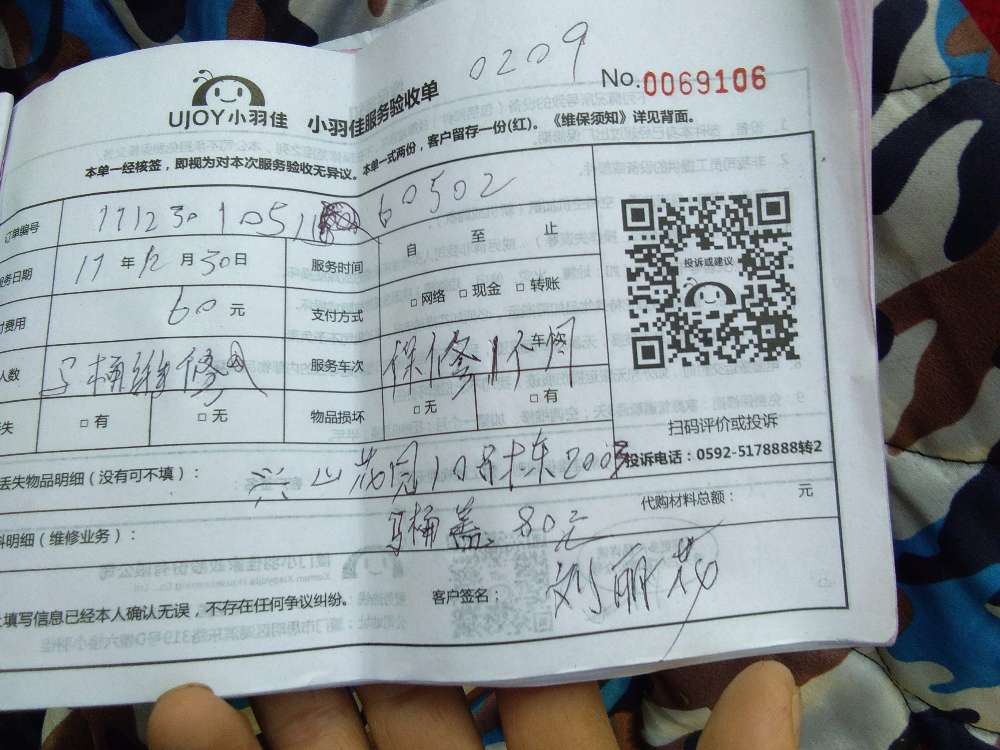 0209
UJOY小羽佳 小羽佳服务验收单 No.0069106
本单一经核签，即视为对本次服务验收无异议。本单一式两份，客户留存一份(红)。《维保须知》详见背面。
订单编号 171230105 60502
服务日期 17年12月30日 服务时间 自 至 止
付费用 60元 支付方式 □网络 □现金 □转账
人数 马桶维修 服务车次 保修1个月 车
失 □有 □无 物品损坏 □无 □有
投诉或建议
扫码评价或投诉
投诉电话：0592-5178888转2
丢失物品明细（没有可不填）： 兴山花园10号栋200
代购材料总额： 元
料明细（维修业务）： 马桶盖 80元
填写信息已经本人确认无误，不存在任何争议纠纷。 客户签名： 刘丽花